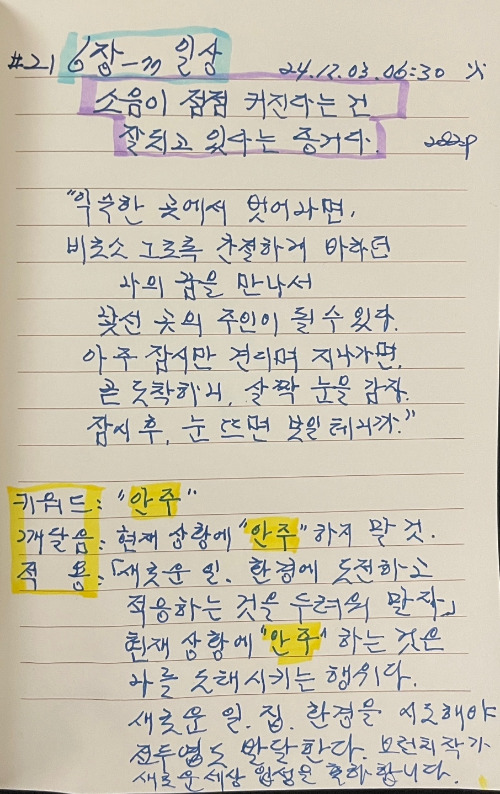 #21 6장_77 일상 24.12.03.06:30 火
소음이 점점 커진다는 건
잘되고 있다는 증거다. 202p
"익숙한 곳에서 벗어나면,
비로소 그토록 간절하게 바라던
나의 꿈을 만나서
낯선 곳의 주인이 될 수 있다.
아주 잠시만 견디며 지나가면,
곧 도착하니, 살짝 눈을 감자.
잠시 후, 눈 뜨면 보일테니까."
키워드: "안주"
깨달음: 현재 상황에 "안주"하지 말 것.
적 용:「새로운 일, 환경에 도전하고
적응하는 것을 두려워 말자」
현재 상황에 "안주" 하는 것은
나를 도태시키는 행위다.
새로운 일, 집, 환경을 시도해야
전두엽도 발달한다. 작가
새로운세상 입성을 축하합니다.